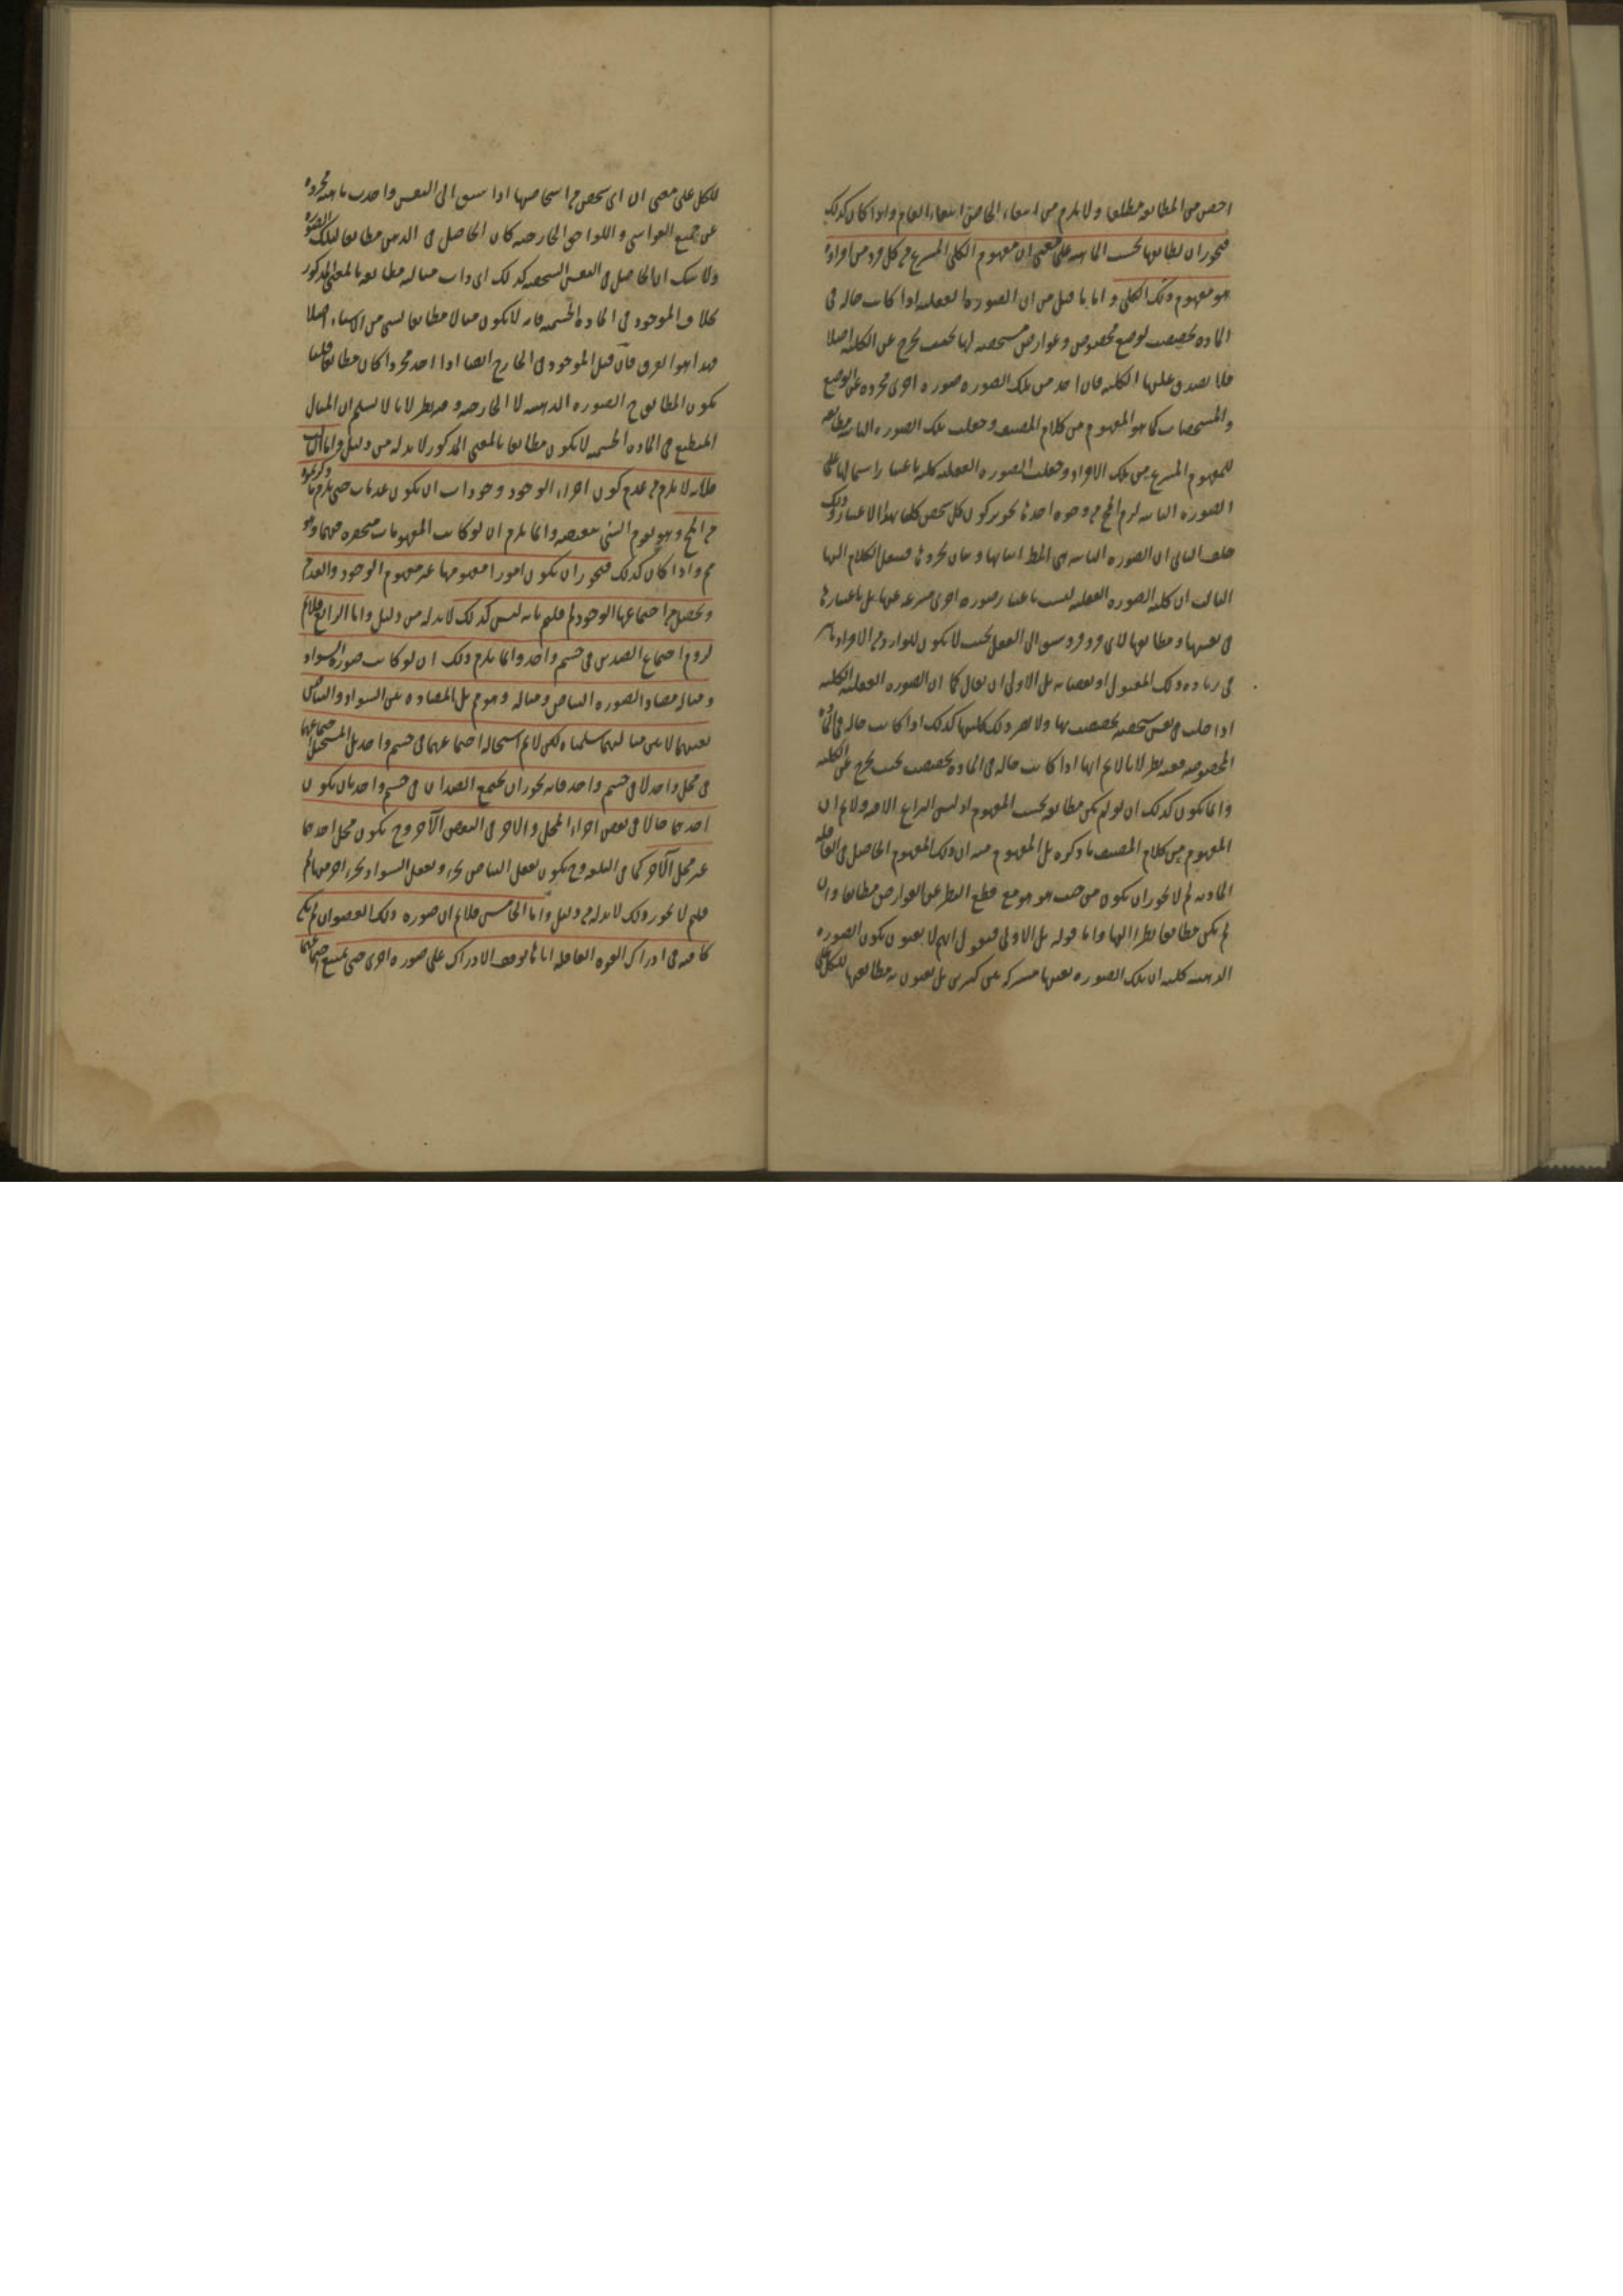 اخص من المطابقة مطلقا ولا يلزم من انتفاء الخاص انتفاء العام واذا كان كذلك
فيجوز ان يطابقها بحسب الماهية على معنى ان مفهوم الكلي المنتزع من كل فرد من افراده
هو مفهوم ذلك الكلي واما ما قيل من ان الصورة العقلية اذا كانت حالة في
المادة تخصصت بوضع مخصوص وعوارض مشخصة لها بحيث تخرج عن الكلية اصلا
فلا يصدق عليها الكلية فان اخذ من تلك الصورة صورة اخرى مجردة عن الوضع
والمشخصات كما هو المفهوم من كلام المصنف وجعلت تلك الصورة الثانية مطابقة
للمفهوم المنتزع من تلك الافراد وجعلت الصورة العقلية كلية باعتبار
الصورة الثانية لزم المح من وجوه احدها تجويز كون كل شخص كليا بهذا الاعتبار وذلك
خلف الثاني ان الصورة الثانية هي فننقل الكلام اليها
الثالث ان كلية الصورة العقلية ليست باعتبار صورة اخرى منتزعة عنها بل باعتبارها
في نفسها ومطابقتها لاي فرد فرد سبق الى العقل بحيث لا يكون للوارد من الافراد تأثير
في زيادة ذلك المعقول او نقصانه بل الاولى ان يقال كما ان الصورة العقلية الكلية
اذا حلت في نفس شخصية تخصصت بها ولا يضر ذلك كليتها كذلك اذا كانت حالة في المادة
المخصوصة ففيه نظر لانا لا نم انها اذا كانت حالة في المادة تخصصت بحيث تخرج عن الكلية
وانما يكون كذلك ان لو لم يكن مطابقة بحسب المفهوم اذ ليس النزاع الا فيه ولا نم ان
المفهوم من كلام المصنف ما ذكره بل المفهوم منه ان ذلك المفهوم الحاصل في القوة
المادية لم لا يجوز ان يكون من حيث هو هو مع قطع النظر عن العوارض مطابقا وان
لم يكن مطابقا نظرا اليها واما قوله بل الاولى فنقول انهم لا يعنون بكون الصورة
الذهنية كلية ان تلك الصورة بعينها مشتركة بين كثيرين بل يعنون به مطابقتها للكل على
للكل على معنى ان اي شخص من اشخاصها اذا سبق الى النفس واخذت ماهيته مجردة
عن جميع الغواشي واللواحق الخارجية كان الحاصل في الذهن مطابقا لتلك الصورة
ولا شك ان الحاصل في النفس الشخصية كذلك اي ذات مثالية مطابقة بالمعنى المذكور
بخلاف الموجود في المادة الجسمية فانه لا يكون مثالا مطابقا لشيء من الاشياء اصلا
فهذا هو الفرق فان قيل الموجود في الخارج ايضا اذا اخذ مجردا كان مطابقا قلنا
يكون المطابق ح الصورة الذهنية لا الخارجية وفيه نظر لانا لا نسلم ان المثال
المنطبع في المادة الجسمية لا يكون مطابقا بالمعنى المذكور لا بد له من دليل واما الثالث
فلانه لا يلزم من عدم كون اجزاء الوجود وجودات ان يكون عدمات حتى يلزم ما ذكرتموه
من المح وهو تقوم الشيء بنقيضه وانما يلزم ان لو كانت المفهومات منحصرة فيهما وهو
مم واذا كان كذلك فيجوز ان يكون امورا مفهومها غير مفهوم الوجود والعدم
ويحصل من اجتماعها الوجود لم قلتم بانه ليس كذلك لا بد له من دليل واما الرابع فلا نم
لزوم اجتماع الضدين في جسم واحد وانما يلزم ذلك ان لو كانت صورة السواد
ومثاله مضادا لصورة البياض ومثاله وهو مم بل المضادة بين السواد والبياض
نفسهما لا بين مثاليهما سلمناه لكن لا نم استحالة اجتماعهما في جسم واحد بل المستحيل اجتماعهما
في محل واحد لا في جسم واحد فانه يجوز ان يجتمع الضدان في جسم واحد بان يكون
احدهما حالا في بعض اجزاء المحل والاخر في البعض الآخر وح يكون محل احدهما
غير محل الآخر كما في البلقة وح يكون تعقل البياض بجزء وتعقل السواد بجزء اخر منها لم
قلتم لا يجوز ذلك لا بد له من دليل واما الخامس فلا نم ان صورة ذلك العضو ان لم يكن
كافية في ادراك القوة العاقلة اياها توقف الادراك على صورة اخرى حتى يمتنع اجتماعهما